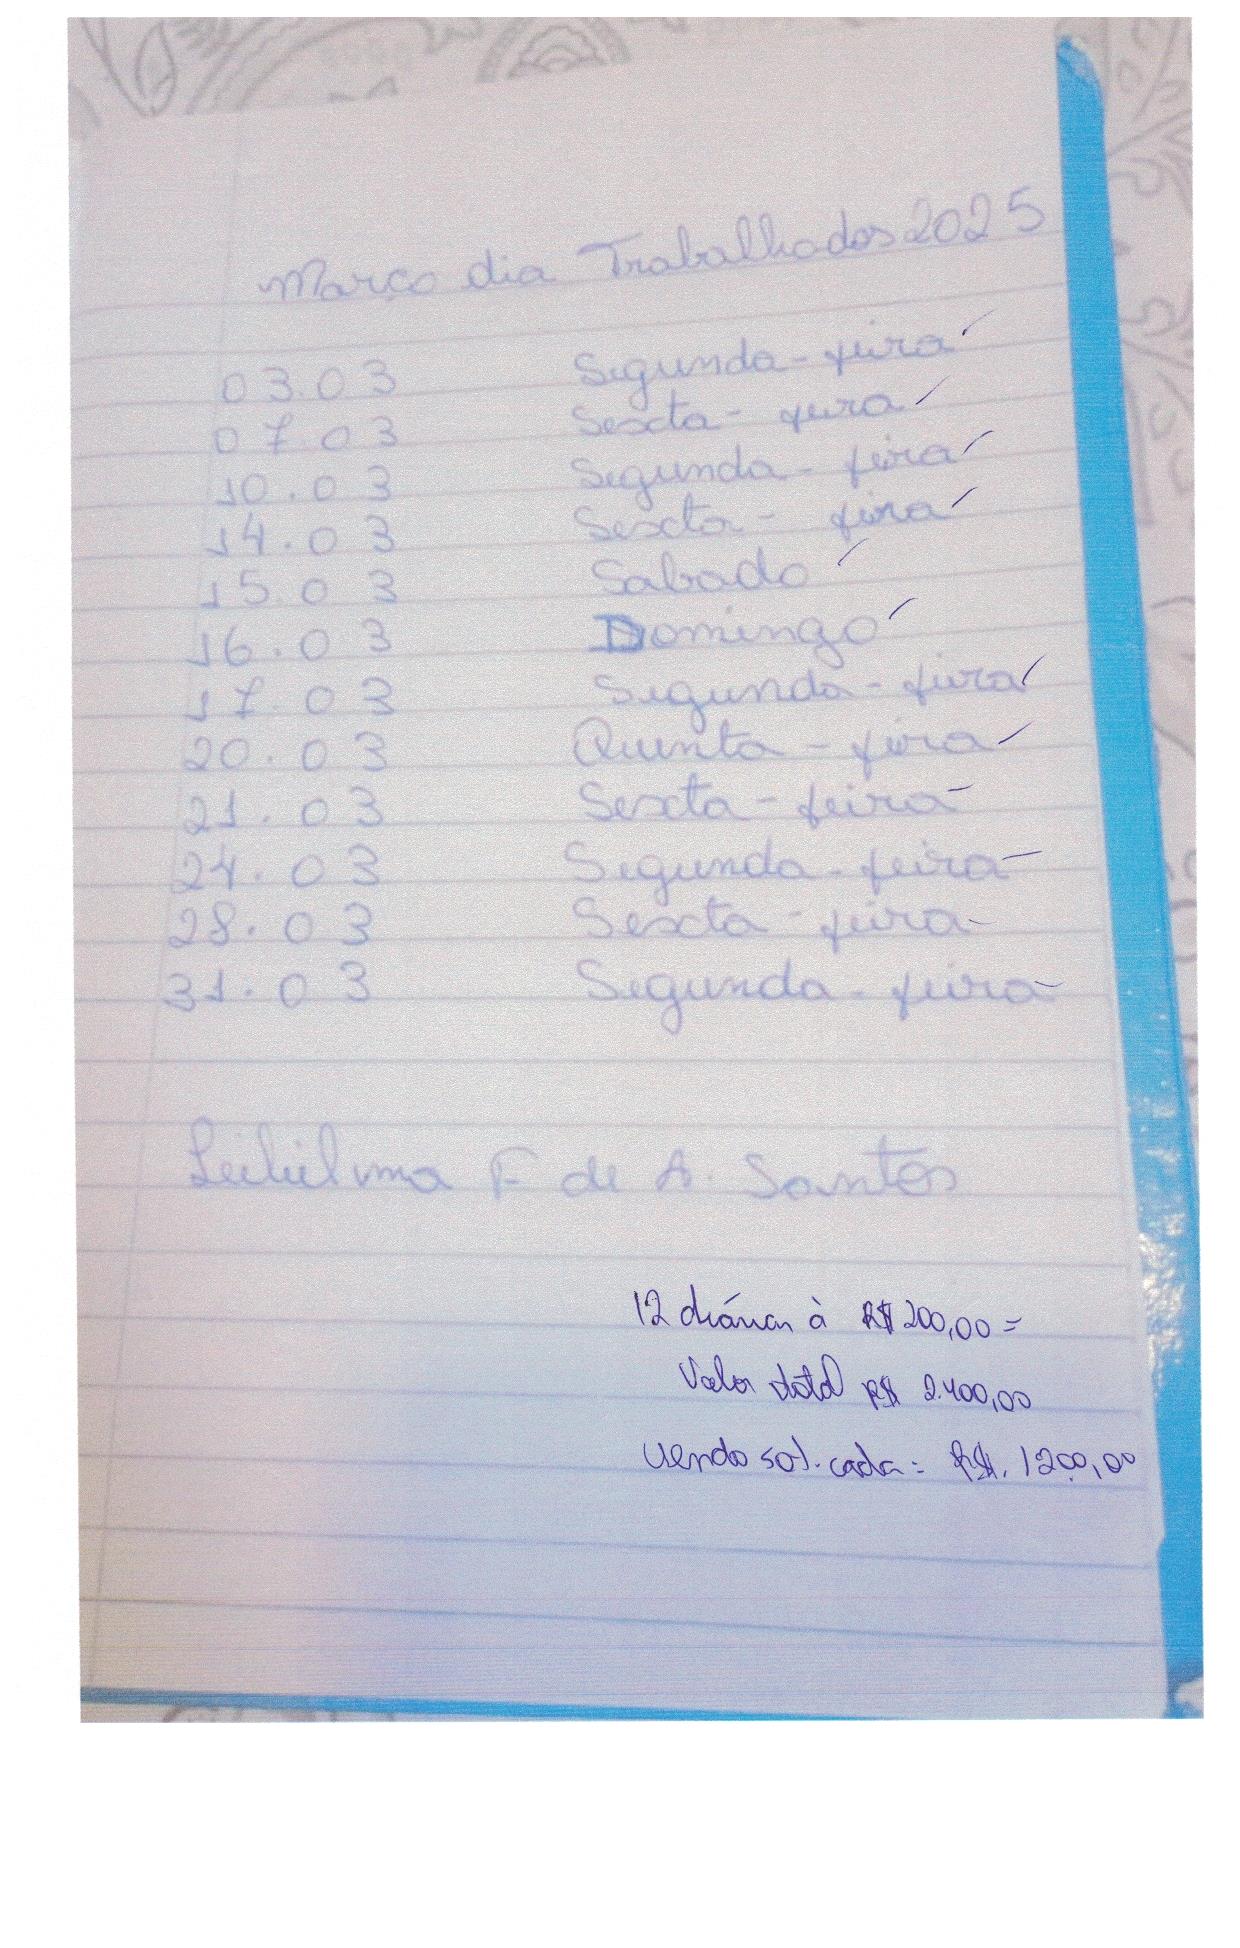 Março dia Trabalhados 2025
03.03 Segunda-feira
07.03 Sexta-feira
10.03 Segunda-feira
14.03 Sexta-feira
15.03 Sabado
16.03 Domingo
17.03 Segunda-feira
20.03 Quinta-feira
21.03 Sexta-feira
24.03 Segunda-feira
28.03 Sexta-feira
31.03 Segunda-feira
F de A. Santos
12 diárias à R$ 200,00 =
Valor total R$ 2.400,00
cada: R$. 1200,00